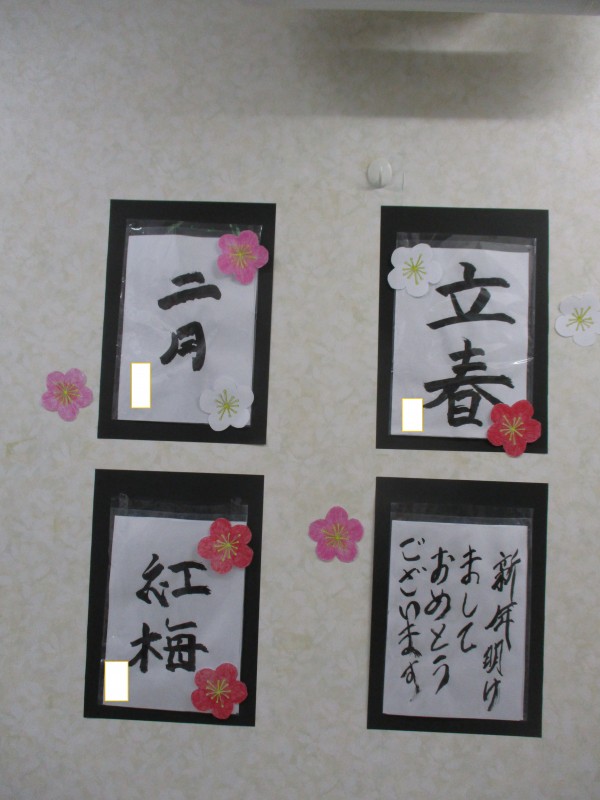 二月
立春
紅梅
新年明け
まして
おめとう
ございます